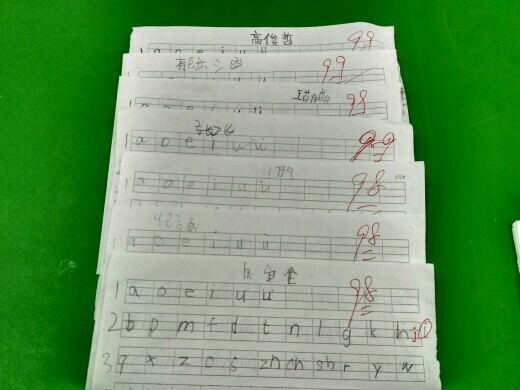 高俊哲 99
1 a o e i u ü
99
98
1 a o e i u ü 99
1 a o e i u ü 98
a o e i u ü 98
1 a o e i u ü 98
2 b p m f d t n l g k h j
3 q x z c s zh ch sh r y w